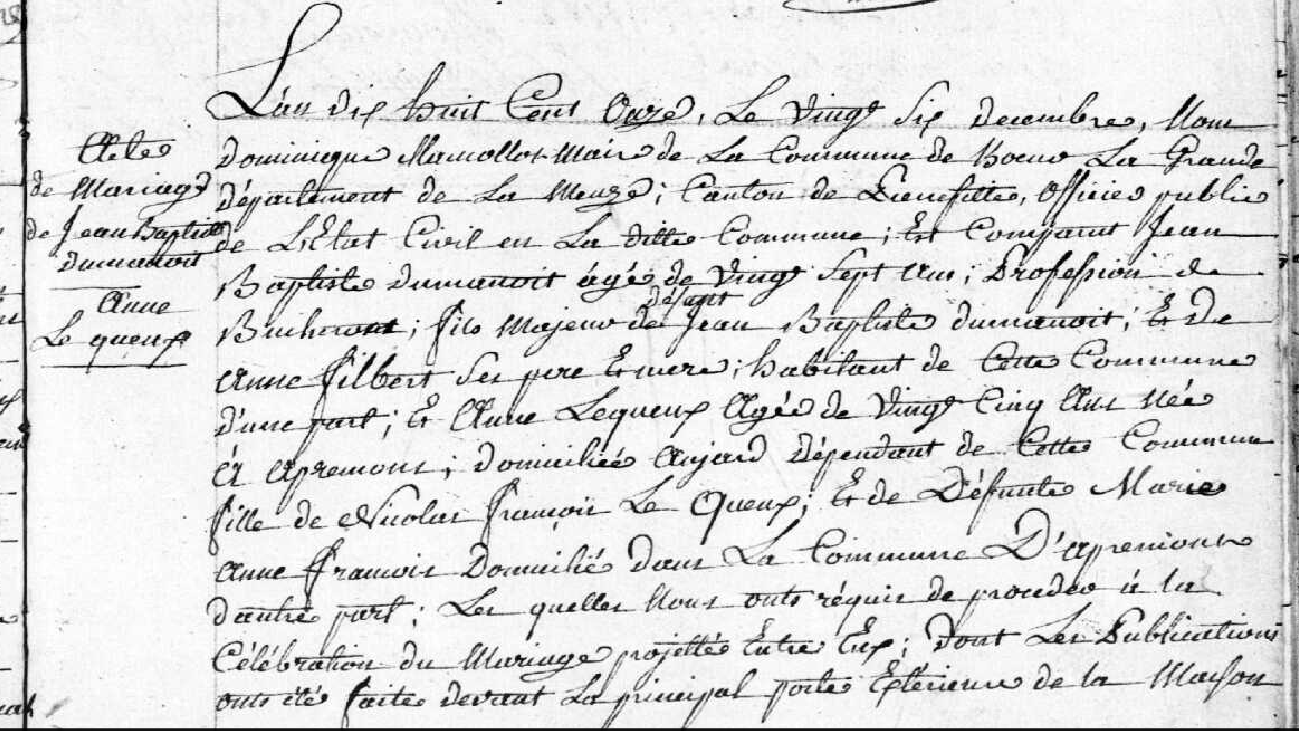 L'an dix huit Cent Onze, Le Vingt Six decembre, Nous
Acte
dominique Mamollot Maire de La Commune de Koeur La Grande
de Mariage
département de La Meuze; Canton de Pierefitte, Officier public
de Jean Baptiste
de L'Etat Civil en La ditte Commune; Est Comparut Jean
dumanoit
Baptiste dumanoit âgé de Vingt Sept Ans; Profession de
Anne
défunt
fils Majeur de Jean Baptiste dumanoit; Et De
Le queux
Anne filbert Ses pere Et mere; habitant de Cette Commune
d'une part; Et Anne Lequeux Agée de Vingt Cinq Ans Née
à Apremont; domiciliée dépendant de Cette Commune
fille de Nicolas françois Le Queux; Et de Défunte Marie
Anne françois Domicilié dans La Commune D'Apremont
d'autre part; Les quelles Nous onts réquis de proceder à la
Célébration du Mariage projettée Entre Eux; dont Les Publications
onts été faite devant La principal porte Extérieure de la Maison